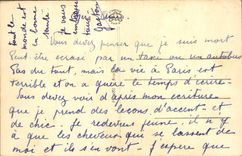 tout le
monde est
en bonne
santé
je vous
embrasse
tous
Gaston
Vous devez penser que je suis mort
Peut être écrasé par un taxe ou un autobus
Pas du tout, mais la vie à Paris est
terrible et on a guère le temps d'écrire.
Vous devez voir d'après mon écriture
que je prend des leçons d'accent et
de chic - je redeviens jeune, il n'y
à que les cheveux qui se lassent de
moi et ils s'en vont. J'espère que